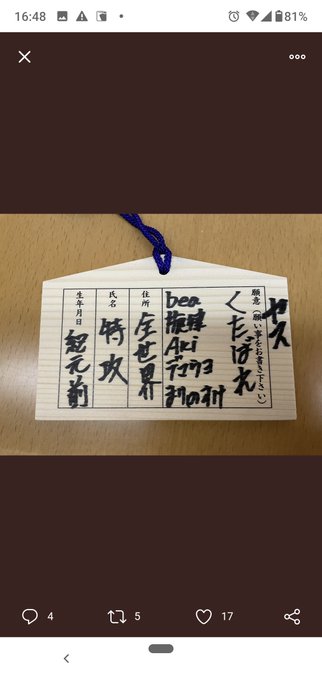 16:48
81%
ヤス
願意（願い事をお書き下さい）
くたばれ
bea
Aki
まりのすけ
住所
全世界
氏名
特攻
生年月日
紀元前
4
5
17